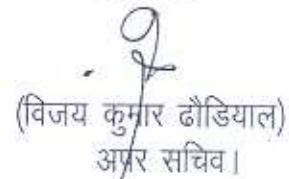 (विजय कुमार ढौडियाल)
अपर सचिव।